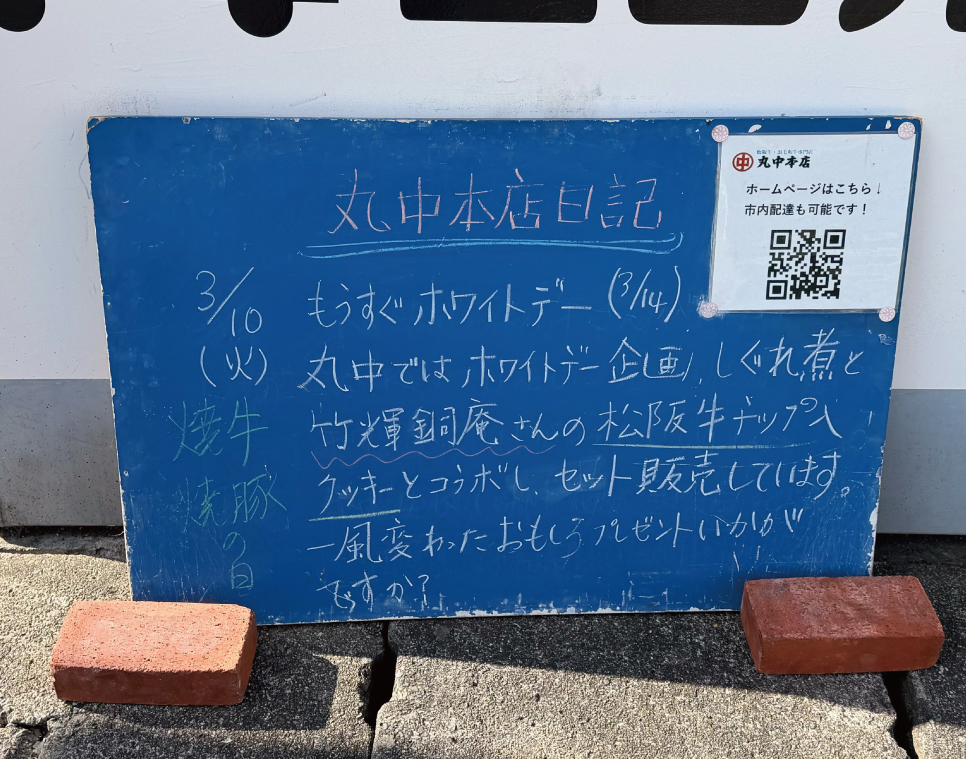 丸中本店日記
3/10
(火)
焼牛
焼豚
の日
もうすぐホワイトデー(3/14)
丸中ではホワイトデー企画、しぐれ煮と
竹輝銅庵さんの松阪牛チップ入
クッキーとコラボし、セット販売しています。
一風変わったおもしろプレゼントいかが
ですか?
丸中本店
ホームページはこちら↓
市内配達も可能です!